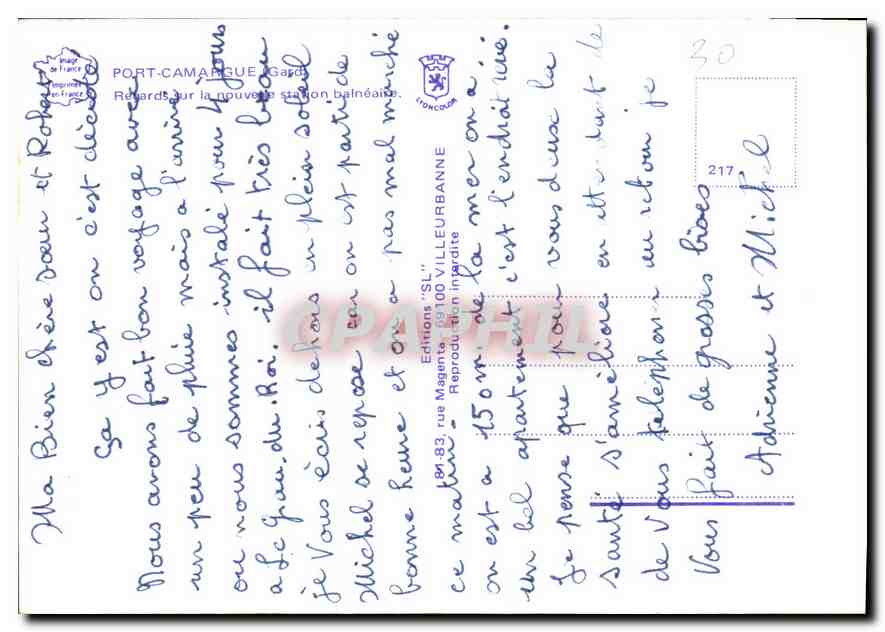 Image
de France
Imprimée
en France
PORT-CAMARGUE (Gard)
Regards sur la nouvelle station balnéaire.
LYONCOLOR
30
217
Editions "SL"
81-83, rue Magenta - 69100 VILLEURBANNE
Reproduction interdite
CPAPHIL
Ma Bien chère sœur et Robert
ça y est on c'est décidé
Nous avons fait bon voyage avec
un peu de pluie mais a l'arrivé
ou nous sommes instalé pour 4 jours
a Le Grau.du.Roi. il fait très beau
je vous écris dehors en plein soleil
Michel se repose car on est parti de
bonne heure et on a pas mal marché
ce matin.
on est a 150m. de la mer on a
un bel apartement c'est l'endroit rêvé.
Je pense que pour vous deux la
santé s'améliore en attendant de
de Vous téléphoner au retour je
Vous fait de grosses bises
Adrienne et Michel